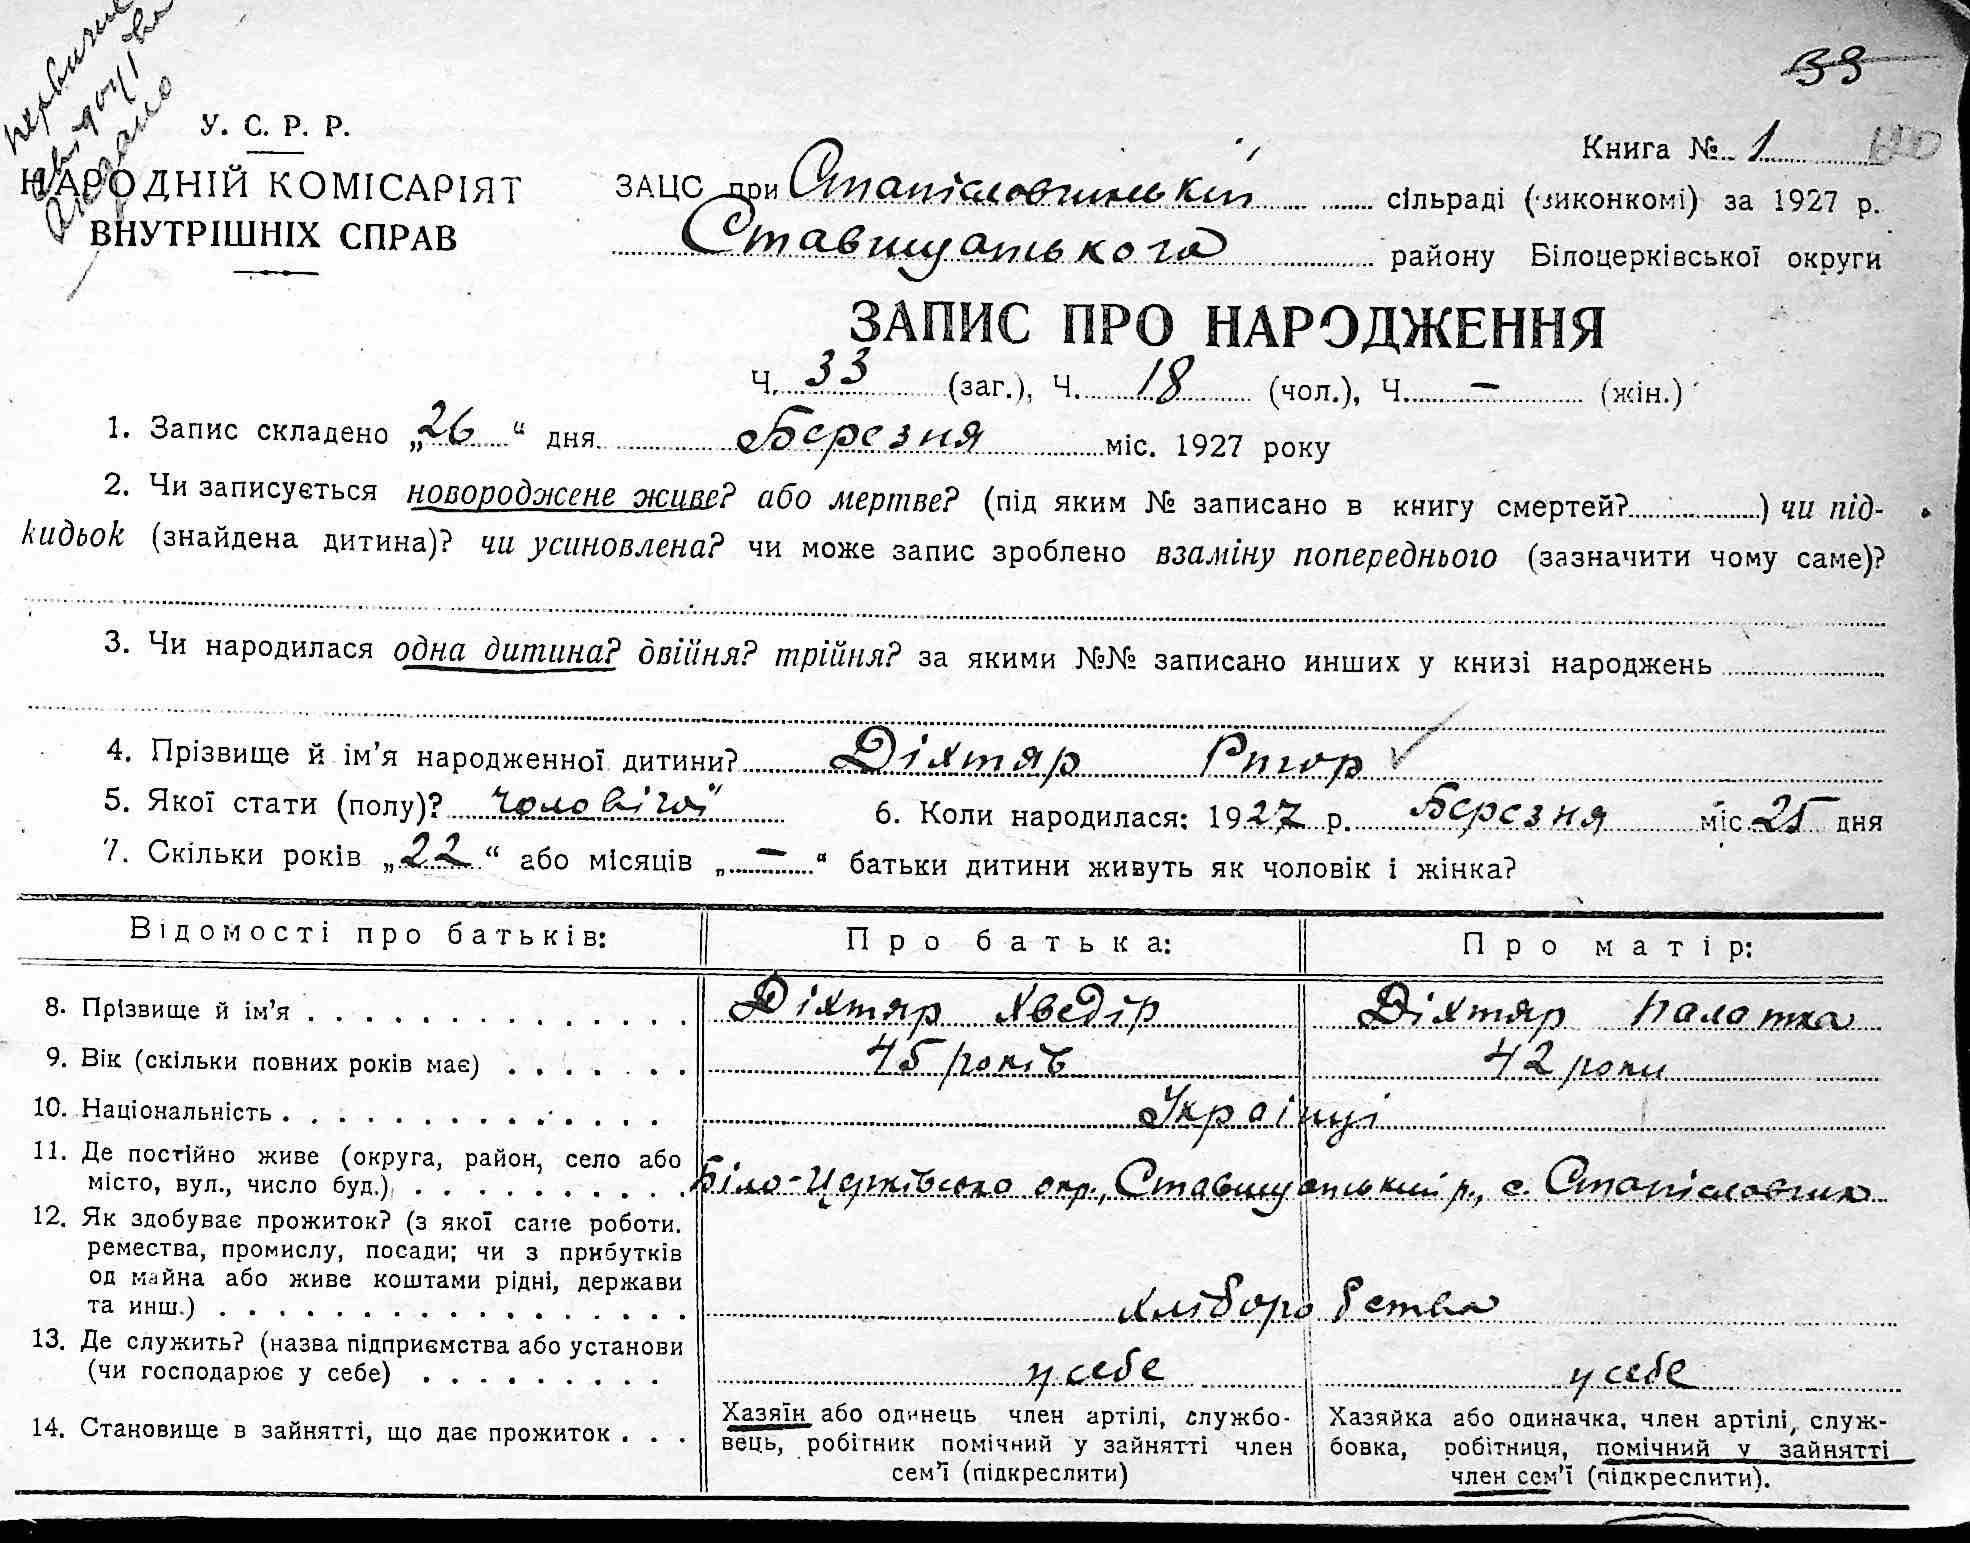 первичне
свідоцтво
видано
33
У. С. Р. Р.
НАРОДНІЙ КОМІСАРІЯТ
ВНУТРІШНІХ СПРАВ
Книга № 1
ЗАЦС при Станіславчикській сільраді (виконкомі) за 1927 р.
Ставищатського району Білоцерківської округи
ЗАПИС ПРО НАРОДЖЕННЯ
Ч. 33 (заг.), Ч. 18 (чол.), Ч. – (жін.)
1. Запис складено „26“ дня Березня міс. 1927 року
2. Чи записується новороджене живе? або мертве? (під яким № записано в книгу смертей? ) чи під-
кидьок (знайдена дитина)? чи усиновлена? чи може запис зроблено взаміну попереднього (зазначити чому саме)?
3. Чи народилася одна дитина? двійня? трійня? за якими №№ записано инших у книзі народжень
4. Прізвище й ім’я народженної дитини? Діхтяр Ригор
5. Якої стати (полу)? чоловічої 6. Коли народилася: 1927 р. Березня міс. 25 дня
7. Скільки років „22“ або місяців „–“ батьки дитини живуть як чоловік і жінка?
Відомості про батьків: Про батька: Про матір:
8. Прізвище й ім’я Діхтяр Хведір Діхтяр Палажка
9. Вік (скільки повних років має) 45 років 42 роки
10. Національність Українці
11. Де постійно живе (округа, район, село або
місто, вул., число буд.) Біло-Церківсько окр., Ставищатський р., с. Станіславчик
12. Як здобуває прожиток? (з якої саме роботи.
ремества, промислу, посади; чи з прибутків
од майна або живе коштами рідні, держави
та инш.) хліборобства
13. Де служить? (назва підприємства або установи
(чи господарює у себе) у себе у себе
14. Становище в зайнятті, що дає прожиток
Хазяїн або одинець член артілі, службо-
вець, робітник помічний у зайнятті член
сем’ї (підкреслити)
Хазяйка або одиначка, член артілі, служ-
бовка, робітниця, помічний у зайнятті
член сем’ї (підкреслити).